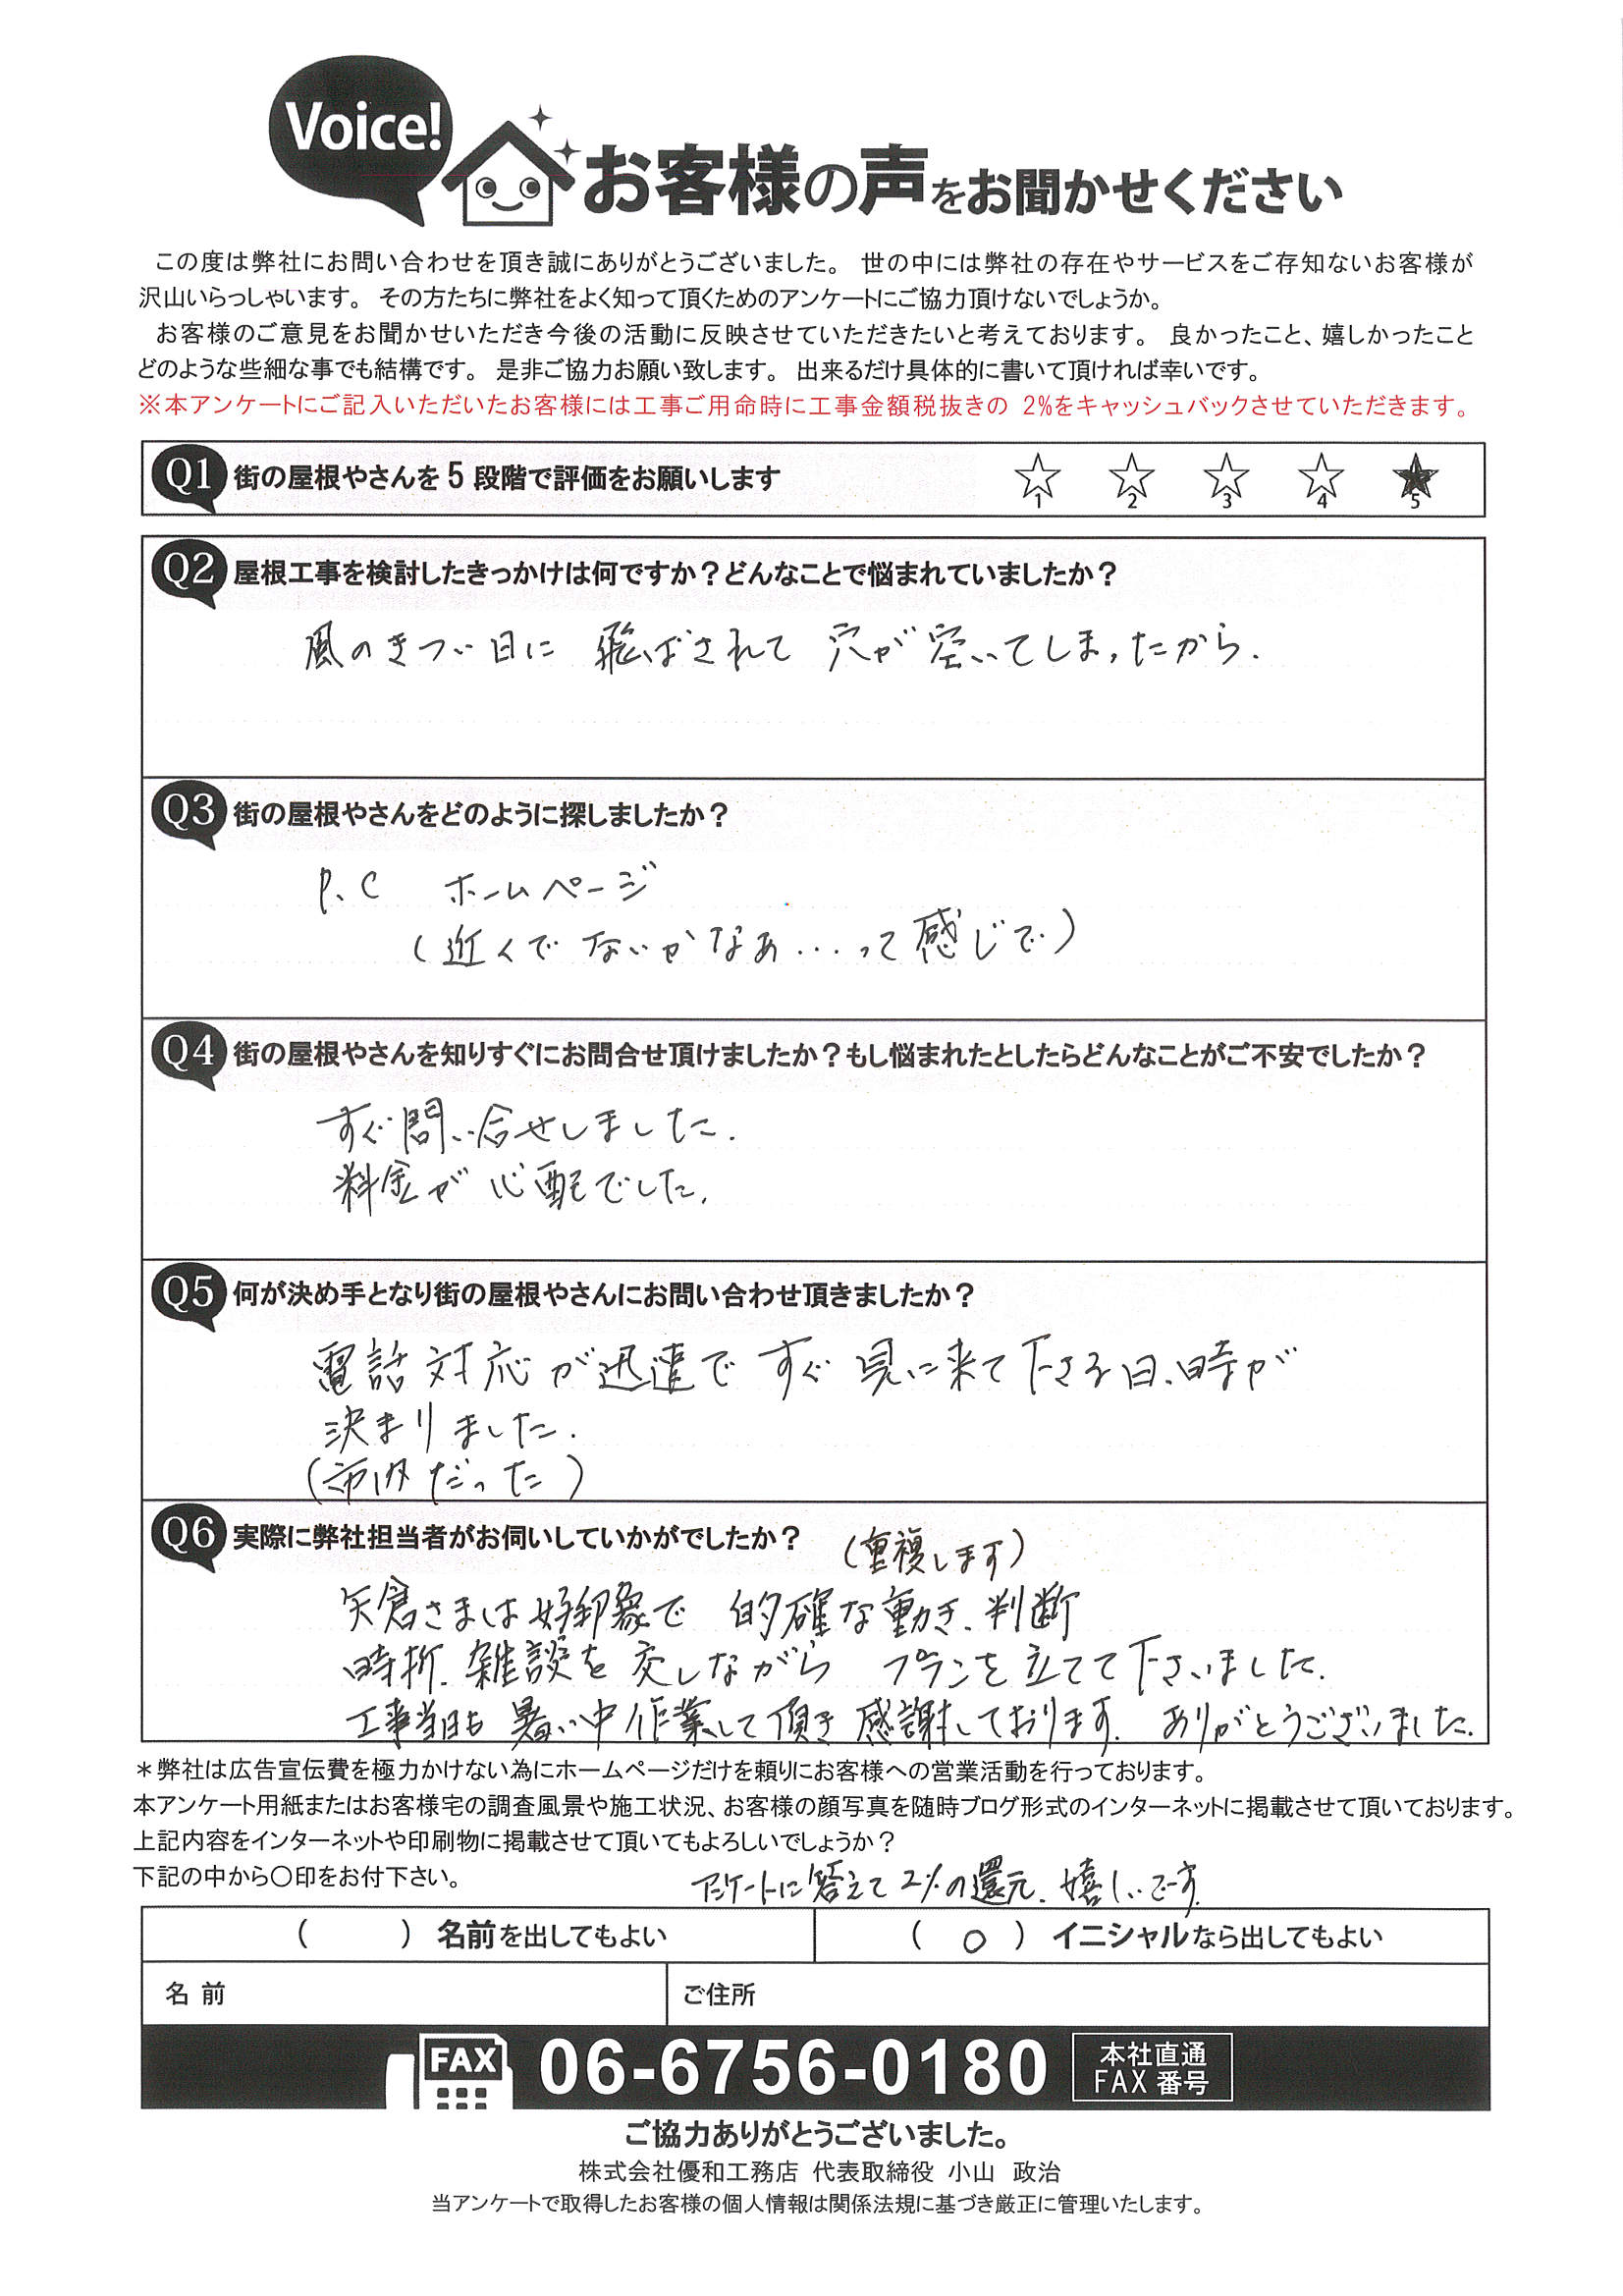 Voice!
お客様の声をお聞かせください
この度は弊社にお問い合わせを頂き誠にありがとうございました。 世の中には弊社の存在やサービスをご存知ないお客様が
沢山いらっしゃいます。 その方たちに弊社をよく知って頂くためのアンケートにご協力頂けないでしょうか。
お客様のご意見をお聞かせいただき今後の活動に反映させていただきたいと考えております。 良かったこと、嬉しかったこと
どのような些細な事でも結構です。 是非ご協力お願い致します。 出来るだけ具体的に書いて頂ければ幸いです。
※本アンケートにご記入いただいたお客様には工事ご用命時に工事金額税抜きの 2%をキャッシュバックさせていただきます。
Q1 街の屋根やさんを 5 段階で評価をお願いします
1 2 3 4 5
Q2 屋根工事を検討したきっかけは何ですか？どんなことで悩まれていましたか？
風のきつい日に 飛ばされて 穴が空いてしまったから.
Q3 街の屋根やさんをどのように探しましたか？
P、C ホームページ
(近くでないかなぁ…って感じで)
Q4 街の屋根やさんを知りすぐにお問合せ頂けましたか？もし悩まれたとしたらどんなことがご不安でしたか？
すぐ問い合せしました.
料金が心配でした.
Q5 何が決め手となり街の屋根やさんにお問い合わせ頂きましたか？
電話対応が迅速ですぐ見に来て下さる日、時が
決まりました.
(市内だった)
Q6 実際に弊社担当者がお伺いしていかがでしたか？ (重複します)
矢倉さまは好印象で 的確な動き、判断
時折、雑談を交しながら プランを立てて下さいました.
工事当日も暑い中作業して頂き感謝しております. ありがとうございました.
＊弊社は広告宣伝費を極力かけない為にホームページだけを頼りにお客様への営業活動を行っております。
本アンケート用紙またはお客様宅の調査風景や施工状況、お客様の顔写真を随時ブログ形式のインターネットに掲載させて頂いております。
上記内容をインターネットや印刷物に掲載させて頂いてもよろしいでしょうか？
下記の中から〇印をお付下さい。
アンケートに答えて2%の還元、嬉しいです.
( ) 名前を出してもよい
( ○ ) イニシャルなら出してもよい
名 前
ご住所
FAX 06-6756-0180 本社直通
FAX 番号
ご協力ありがとうございました。
株式会社優和工務店 代表取締役 小山 政治
当アンケートで取得したお客様の個人情報は関係法規に基づき厳正に管理いたします。